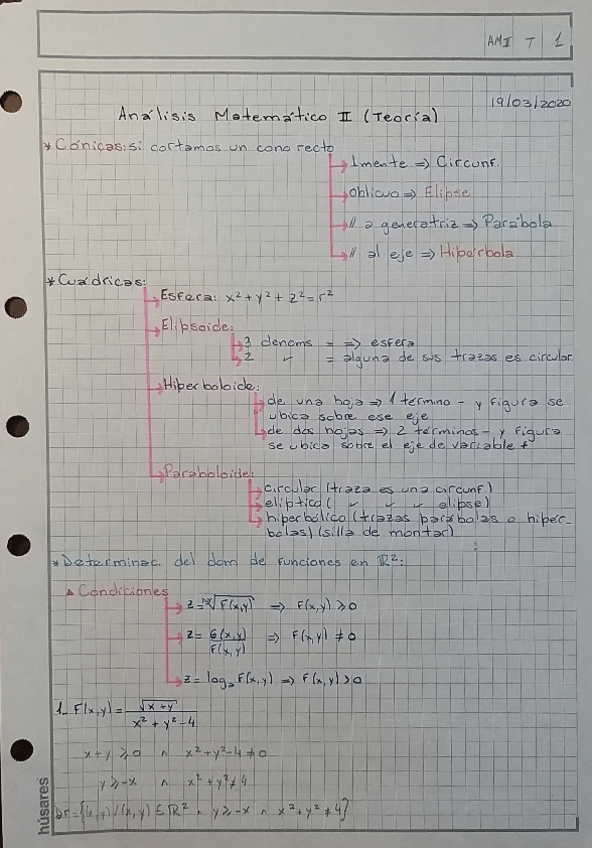 AMI T 1
19/03/2020
Análisis Matemático II (Teoría)
* Cónicas: si cortamos un cono recto
⊥mente => Circunf.
Oblicuo => Elipse
// a generatriz => Parábola
// al eje => Hipérbola
* Cuádricas:
Esfera: x² + y² + z² = r²
Elipsoide:
3 denoms = => esfera
2 " = alguna de sus trazas es circular
Hiperboloide:
de una hoja => 1 término - y figura se
ubica sobre ese eje
de dos hojas => 2 términos - y figura
se ubica sobre el eje de variable +
Paraboloide:
circular (traza es una circunf)
elíptico ( " " " elipse)
hiperbólico (trazas parábolas o hipér-
bolas) (silla de montar)
* Determinac del dom de funciones en ℝ²:
▲ Condiciones
z = ²ⁿ√F(x,y) => F(x,y) ⩾ 0
z = G(x,y)/F(x,y) => F(x,y) ≠ 0
z = logₐ F(x,y) => F(x,y) > 0
1_ F(x,y) = √(x+y) / (x² + y² - 4)
x + y ⩾ 0 ∧ x² + y² - 4 ≠ 0
y ⩾ -x ∧ x² + y² ≠ 4
Df = {(x,y) / (x,y) ∈ ℝ² ∧ y ⩾ -x ∧ x² + y² ≠ 4}
húsares